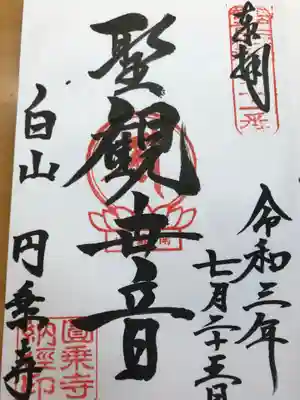 奉拝
令和三年
七月二十五日
聖観世音
白山 円乗寺
圓乗寺
納経印